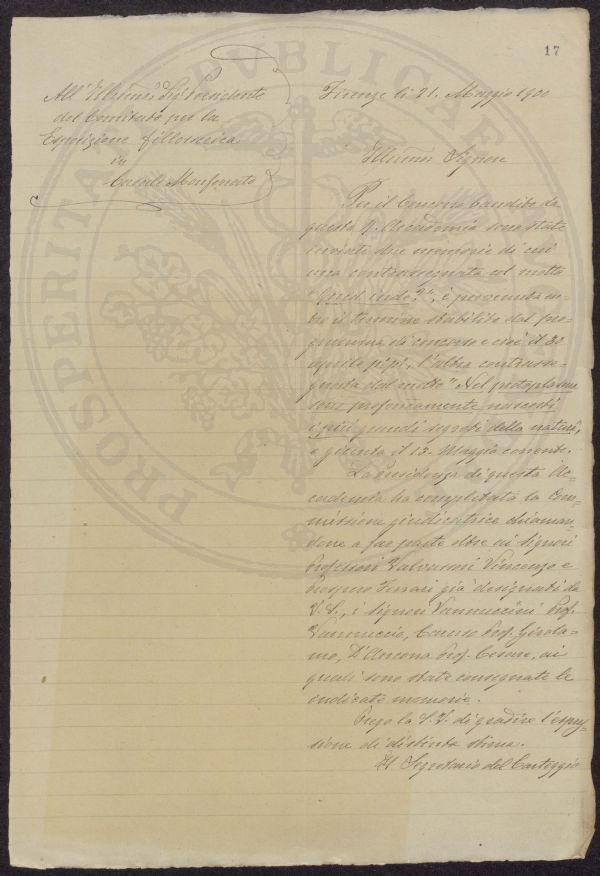 17
All' Illmo Sigr Presidente
del Comitato per la
Esposizione fillosserica
in
Casale Monferrato
Firenze li 21. Maggio 1900
Illmo Signore
Per il Concorso bandito da
questa R. Accademia sono state
inviate due memorie di cui
una contrassegnata col motto
"Quid inde?", è pervenuta en-
tro il termine stabilito dal pro-
gramma di concorso e cioè il 30
aprile p:p:, l'altra contrasse-
gnata dal motto "Nel protoplasma
sono profondamente nascosti
i più grandi segreti della natura",
è giunta il 12. Maggio corrente.
La Presidenza di questa Ac-
cademia ha completata la Com-
missione giudicatrice chiaman-
done a far parte oltre ai Signori
Professori Valvassori Vincenzo e
Prospero Ferrari già designati da
V. S., i Signori Vannuccini Prof.
Vannuccio, Caruso Prof. Girola-
mo, D'Ancona Prof. Cesare, ai
quali sono state consegnate le
indicate memorie.
Prego la S. V. di gradire l'espres-
sione di distinta stima.
Il Segretario del Carteggio
PROSPERITATI PVBLICAE